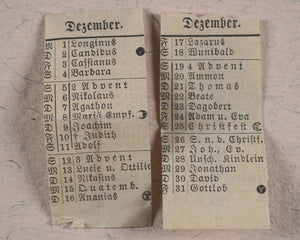 Dezember.
M 1 Longinus
D 2 Candidus
F 3 Cassianus
S 4 Barbara
S 5 2 Advent
M 6 Nikolaus
D 7 Agathon
M 8 Mariä Empf.
D 9 Joachim
F 10 Judith
S 11 Adolf
S 12 3 Advent
M 13 Lucie u. Ottilie
D 14 Nikasius
M 15 Quatemb.
D 16 Ananias
Dezember.
F 17 Lazarus
S 18 Wunibald
S 19 4 Advent
M 20 Ammon
D 21 Thomas
M 22 Beate
D 23 Dagobert
F 24 Adam u. Eva
S 25 Christfest
S 26 S. n. d. Christf.
M 27 Joh., Ev.
D 28 Unsch. Kindlein
M 29 Jonathan
D 30 David
F 31 Gottlob